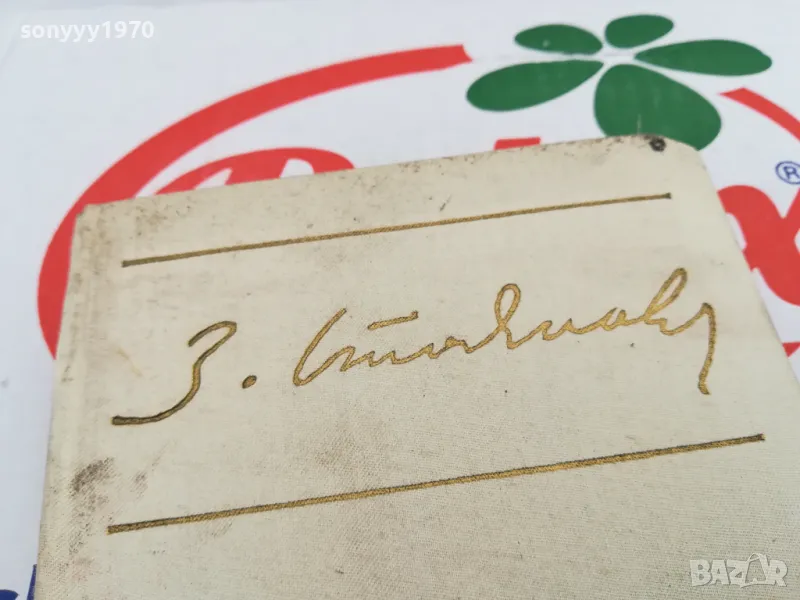 sonyyy1970
®
З. Стояновъ
BAZAR